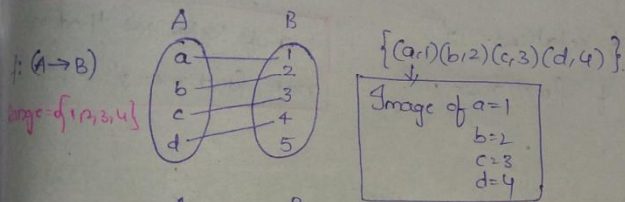 A B
f: (A→B)
Range={1,2,3,4}
a
b
c
d
1
2
3
4
5
{(a,1)(b,2)(c,3)(d,4)}
Image of a=1
b=2
c=3
d=4